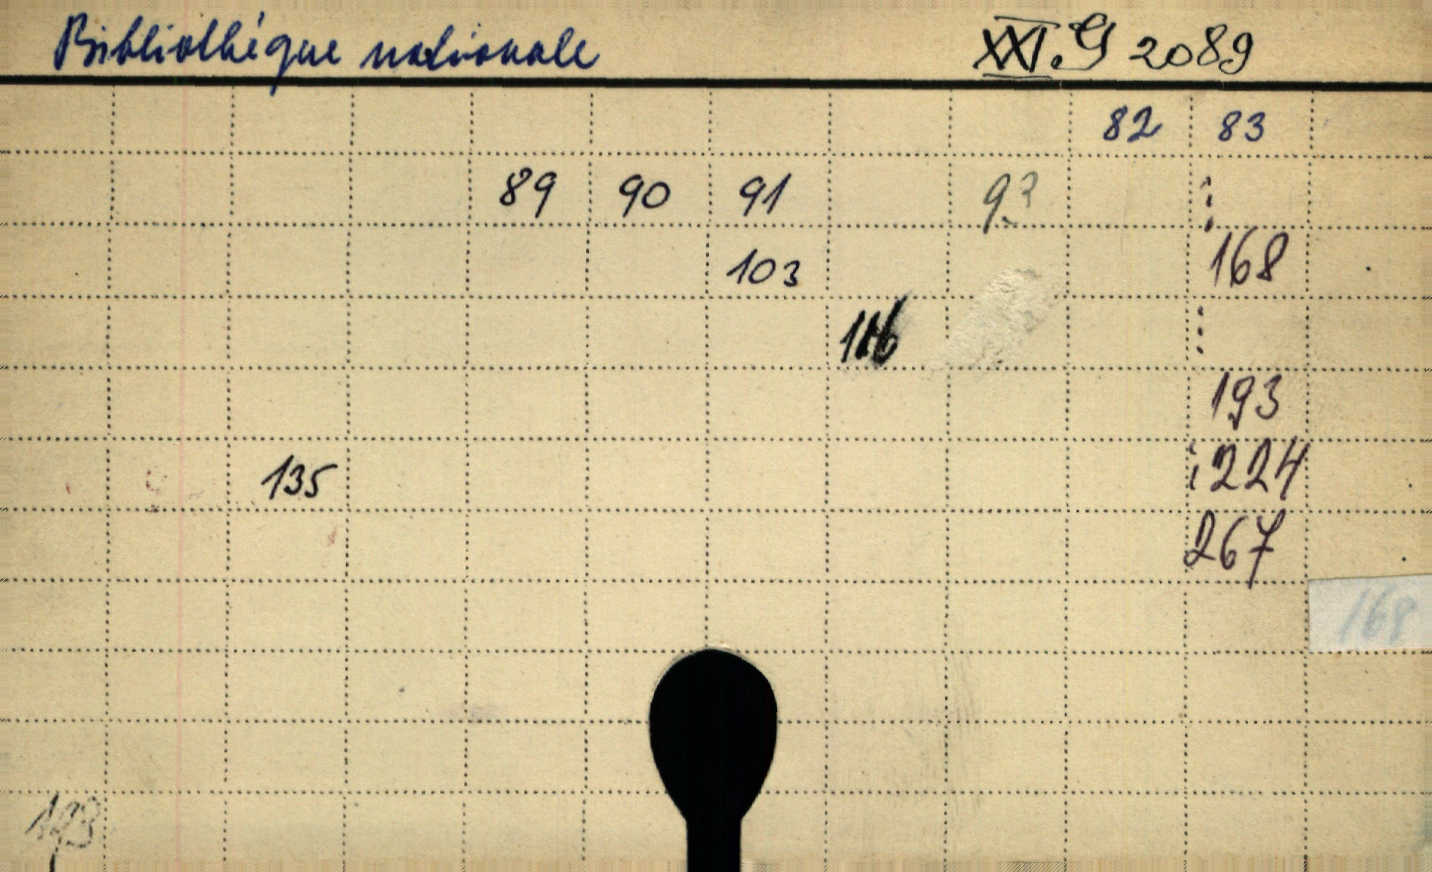 Bibliothéque nationale XXI.G 2089
82 83
89 90 91
103 168
116
193
135 224
267
168